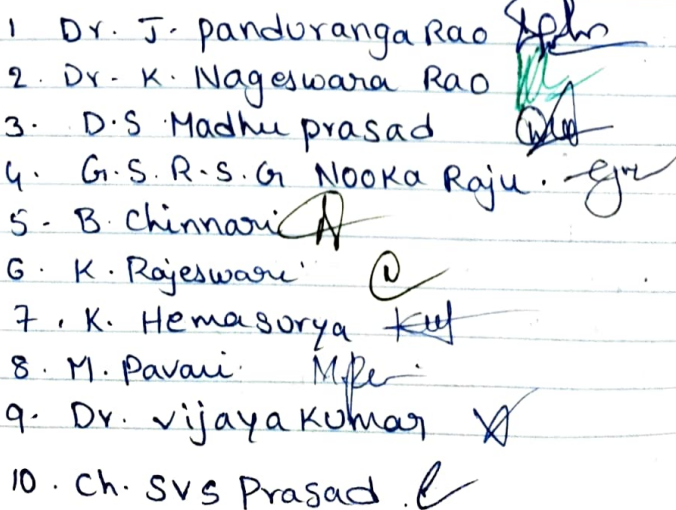 1 Dr. J. Panduranga Rao
2. Dr. K. Nageswara Rao
3. D.S Madhu prasad
4. G.S.R.S.G Nooka Raju.
5. B. Chinnari
6. K. Rajeswari
7. K. Hemasurya
8. M. Pavani
9. Dr. Vijaya Kumar
10. Ch. SVS Prasad